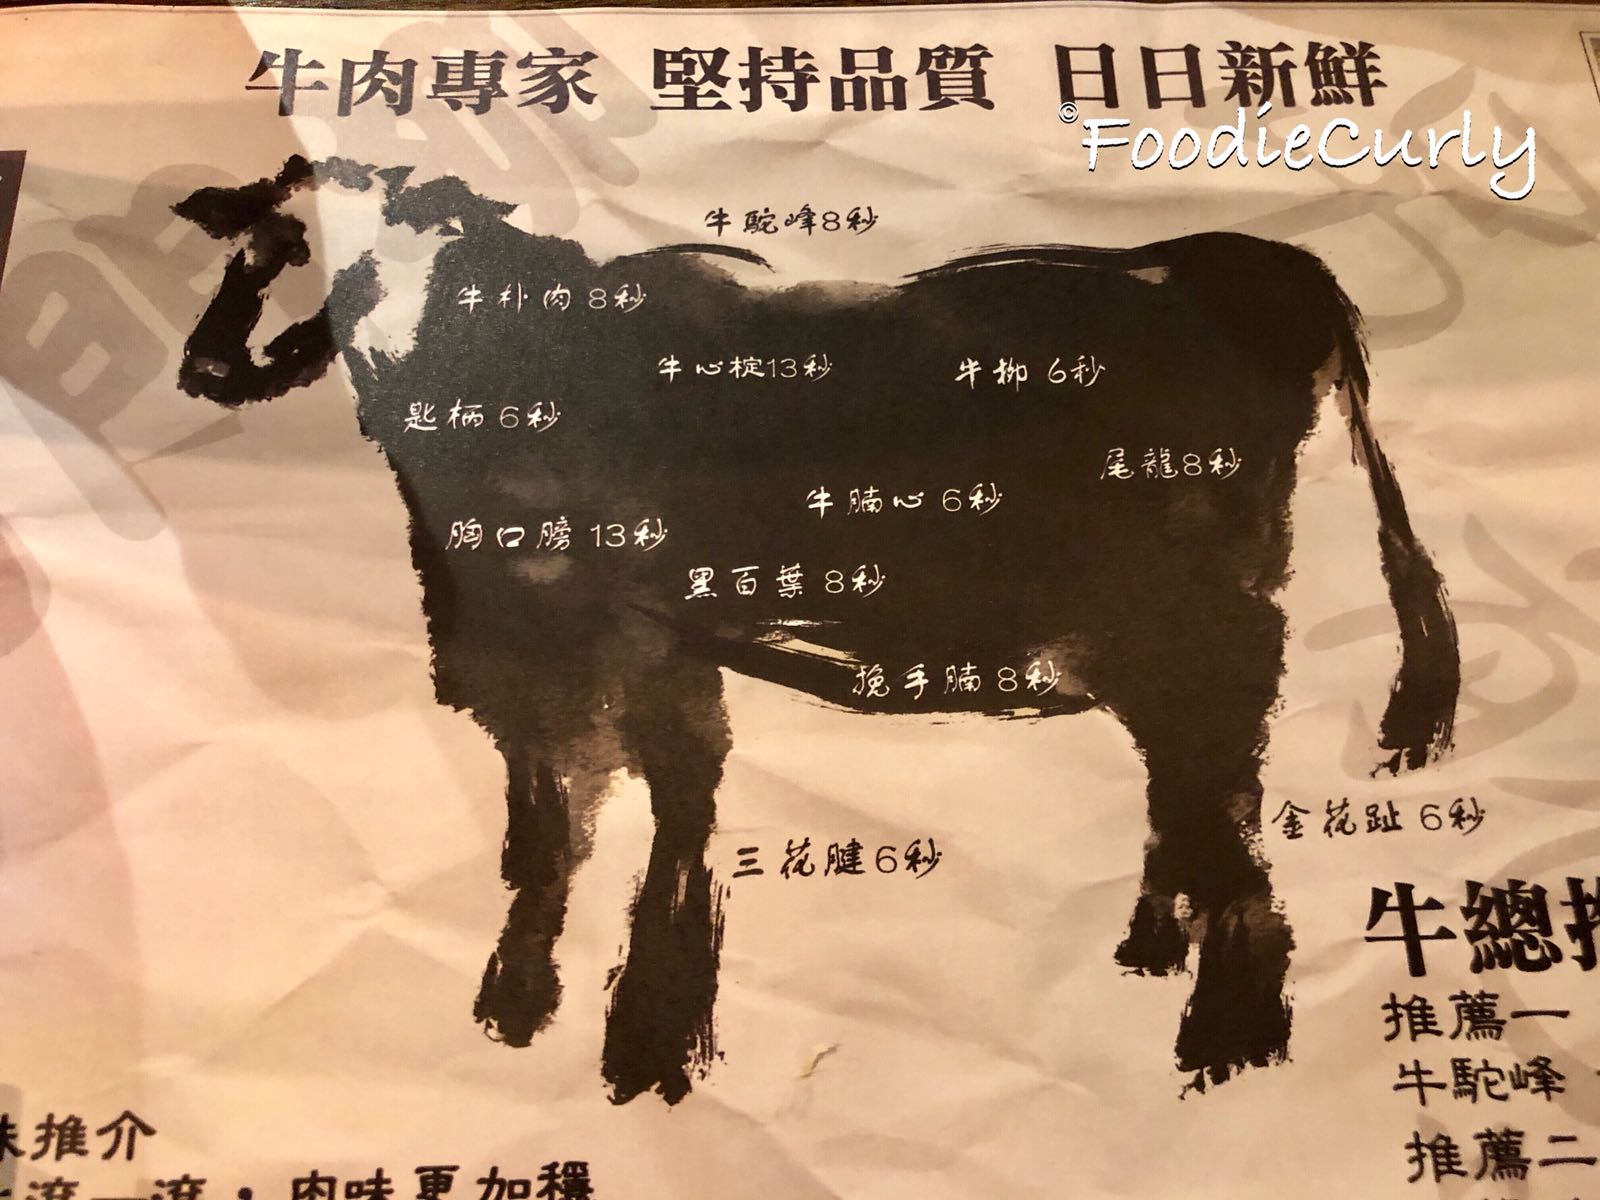 牛肉專家 堅持品質 日日新鮮
©FoodieCurly
牛駝峰8秒
牛朴肉 8秒
牛心椗13秒
牛柳 6秒
匙柄 6秒
尾龍8秒
牛腩心 6秒
胸口膀 13秒
黑百葉 8秒
挽手腩 8秒
金花趾 6秒
三花腱 6秒
牛總推
推薦一
牛駝峰
推薦二
味推介
滾一滾，肉味更加穩